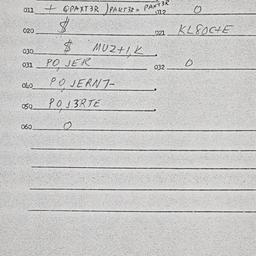 011 + 6PAXT3R )PAXT3R= PAXT3R
012 0
020 $ 021 KL8OC+E
030 $ MUZ+1,K
031 PO JER 032 0
040 PO JERN7-
050 PO J3RTE
060 0